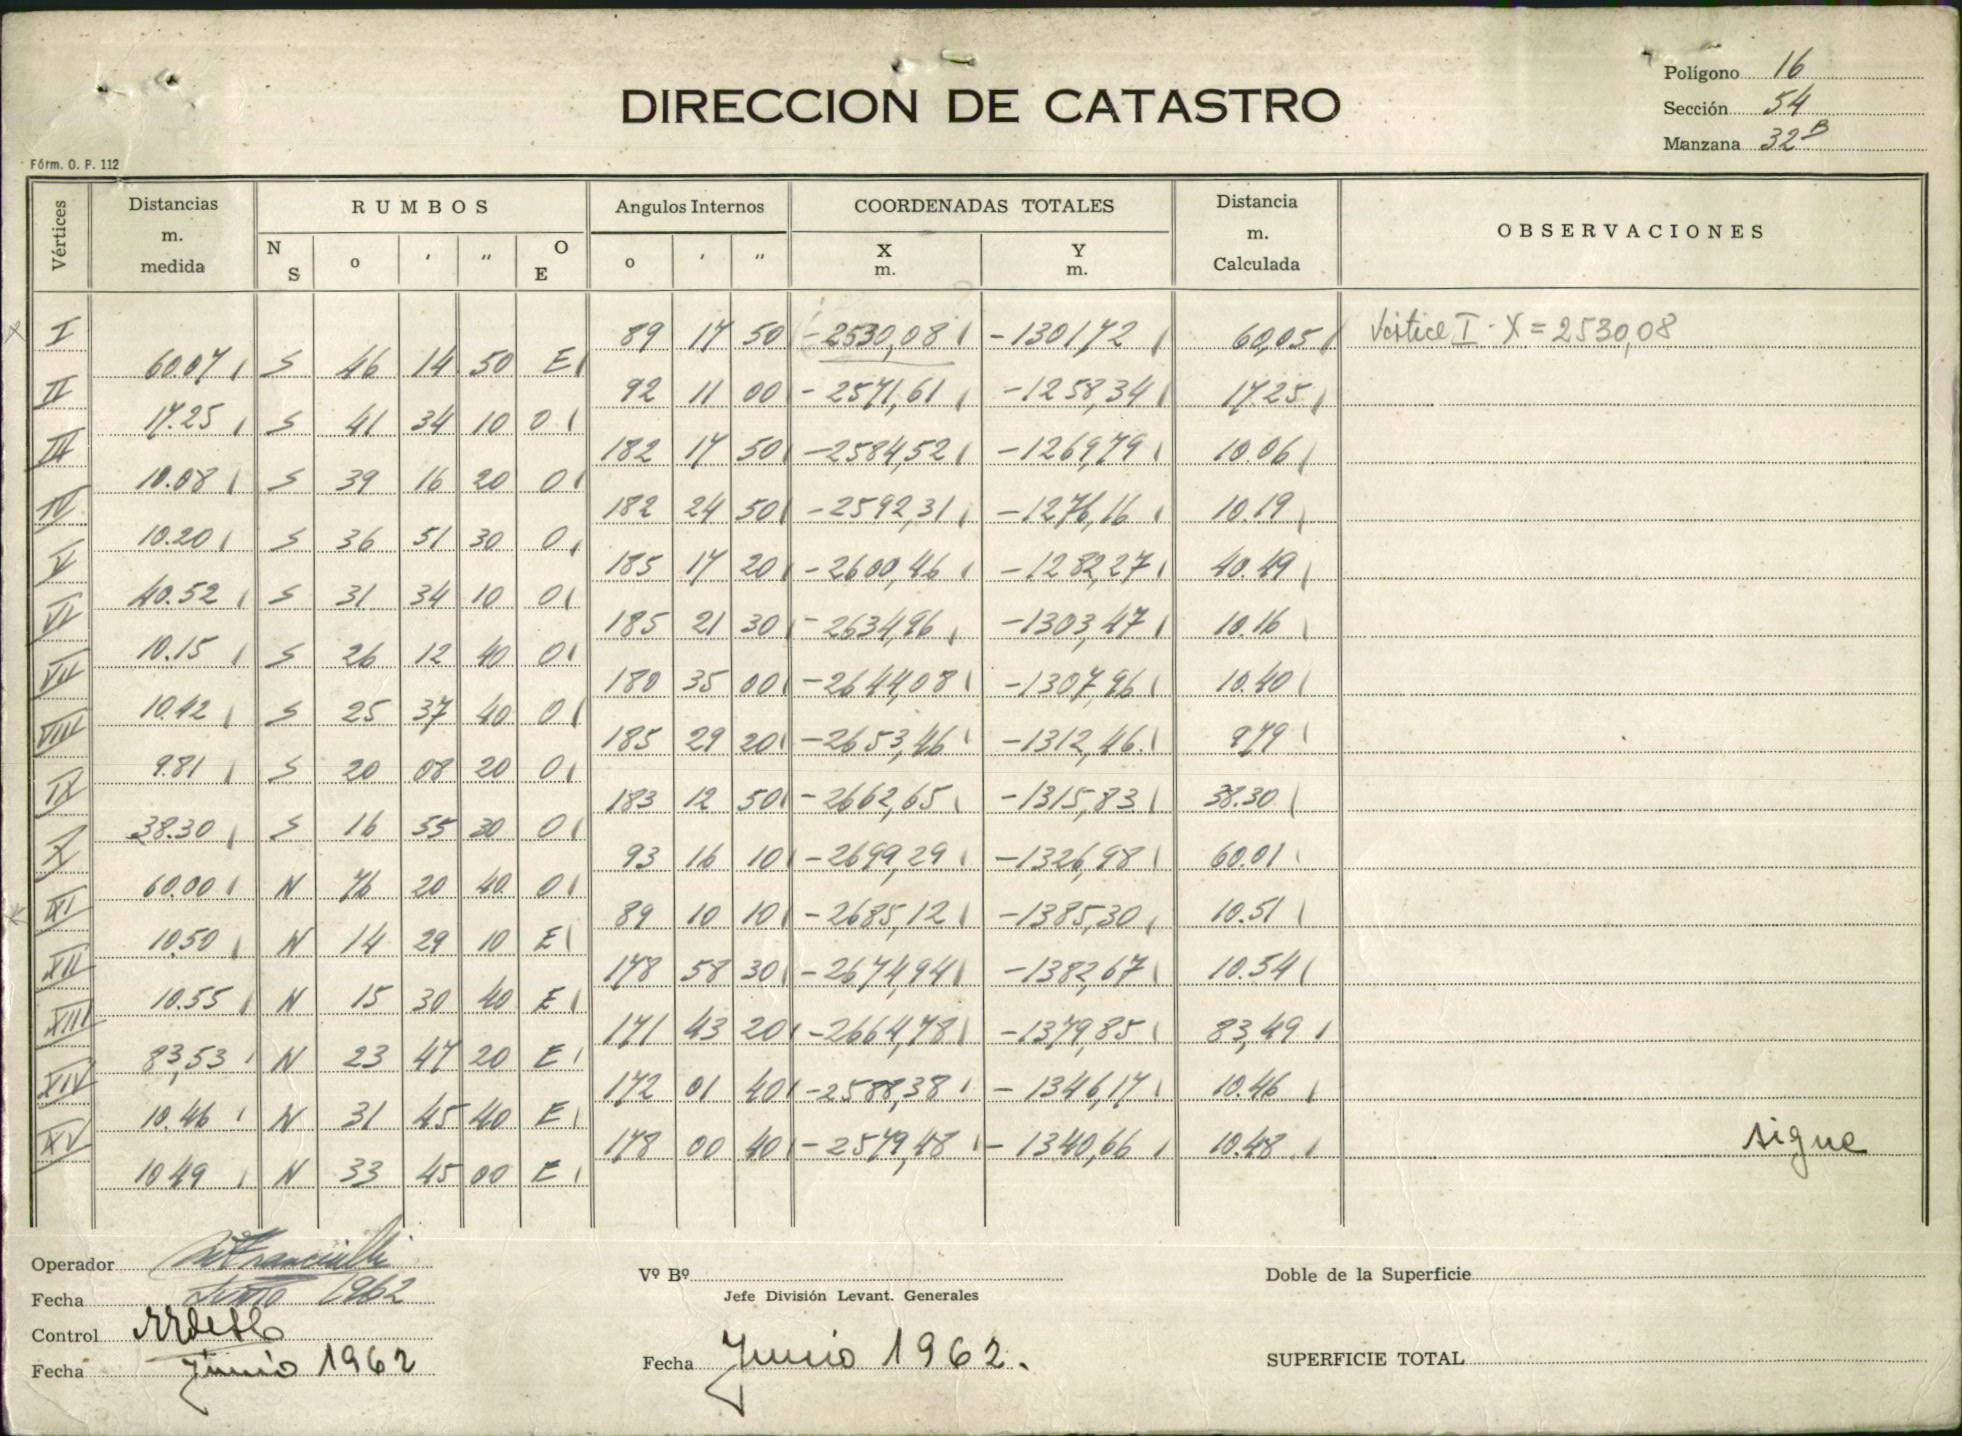 Polígono 16
DIRECCION DE CATASTRO
Sección 54
Manzana 32 B
Fórm. O. P. 112
Vértices Distancias m. medida RUMBOS N S o ′ ″ O E Angulos Internos o ′ ″ COORDENADAS TOTALES X m. Y m. Distancia m. Calculada OBSERVACIONES
I 89 17 50 -2530,08 -1301,72 60,05 Vértice I - X = 2530,08
60.07 S 46 14 50 E
II 92 11 00 -2571,61 -1258,34 17.25
17.25 S 41 34 10 O
III 182 17 50 -2584,52 -1269,79 10.06
10.08 S 39 16 20 O
IV 182 24 50 -2592,31 -1276,16 10.19
10.20 S 36 51 30 O
V 185 17 20 -2600,46 -1282,27 40.49
40.52 S 31 34 10 O
VI 185 21 30 -2634,96 -1303,47 10.16
10.15 S 26 12 40 O
VII 180 35 00 -2644,08 -1307,96 10.40
10.42 S 25 37 40 O
VIII 185 29 20 -2653,46 -1312,46 9.79
9.81 S 20 08 20 O
IX 183 12 50 -2662,65 -1315,83 38.30
38.30 S 16 55 30 O
X 93 16 10 -2699,29 -1326,98 60.01
60.00 N 76 20 40 O
XI 89 10 10 -2685,12 -1385,30 10.51
10.50 N 14 29 10 E
XII 178 58 30 -2674,94 -1382,67 10.54
10.55 N 15 30 40 E
XIII 171 43 20 -2664,78 -1379,85 83,49
83,53 N 23 47 20 E
XIV 172 01 40 -2588,38 -1346,17 10.46
10.46 N 31 45 40 E
XV 178 00 40 -2579,48 -1340,66 10.48 sigue
10.49 N 33 45 00 E
Operador
Fecha 1962
Control
Fecha junio 1962
Vº Bº
Jefe División Levant. Generales
Fecha Junio 1962.
Doble de la Superficie
SUPERFICIE TOTAL